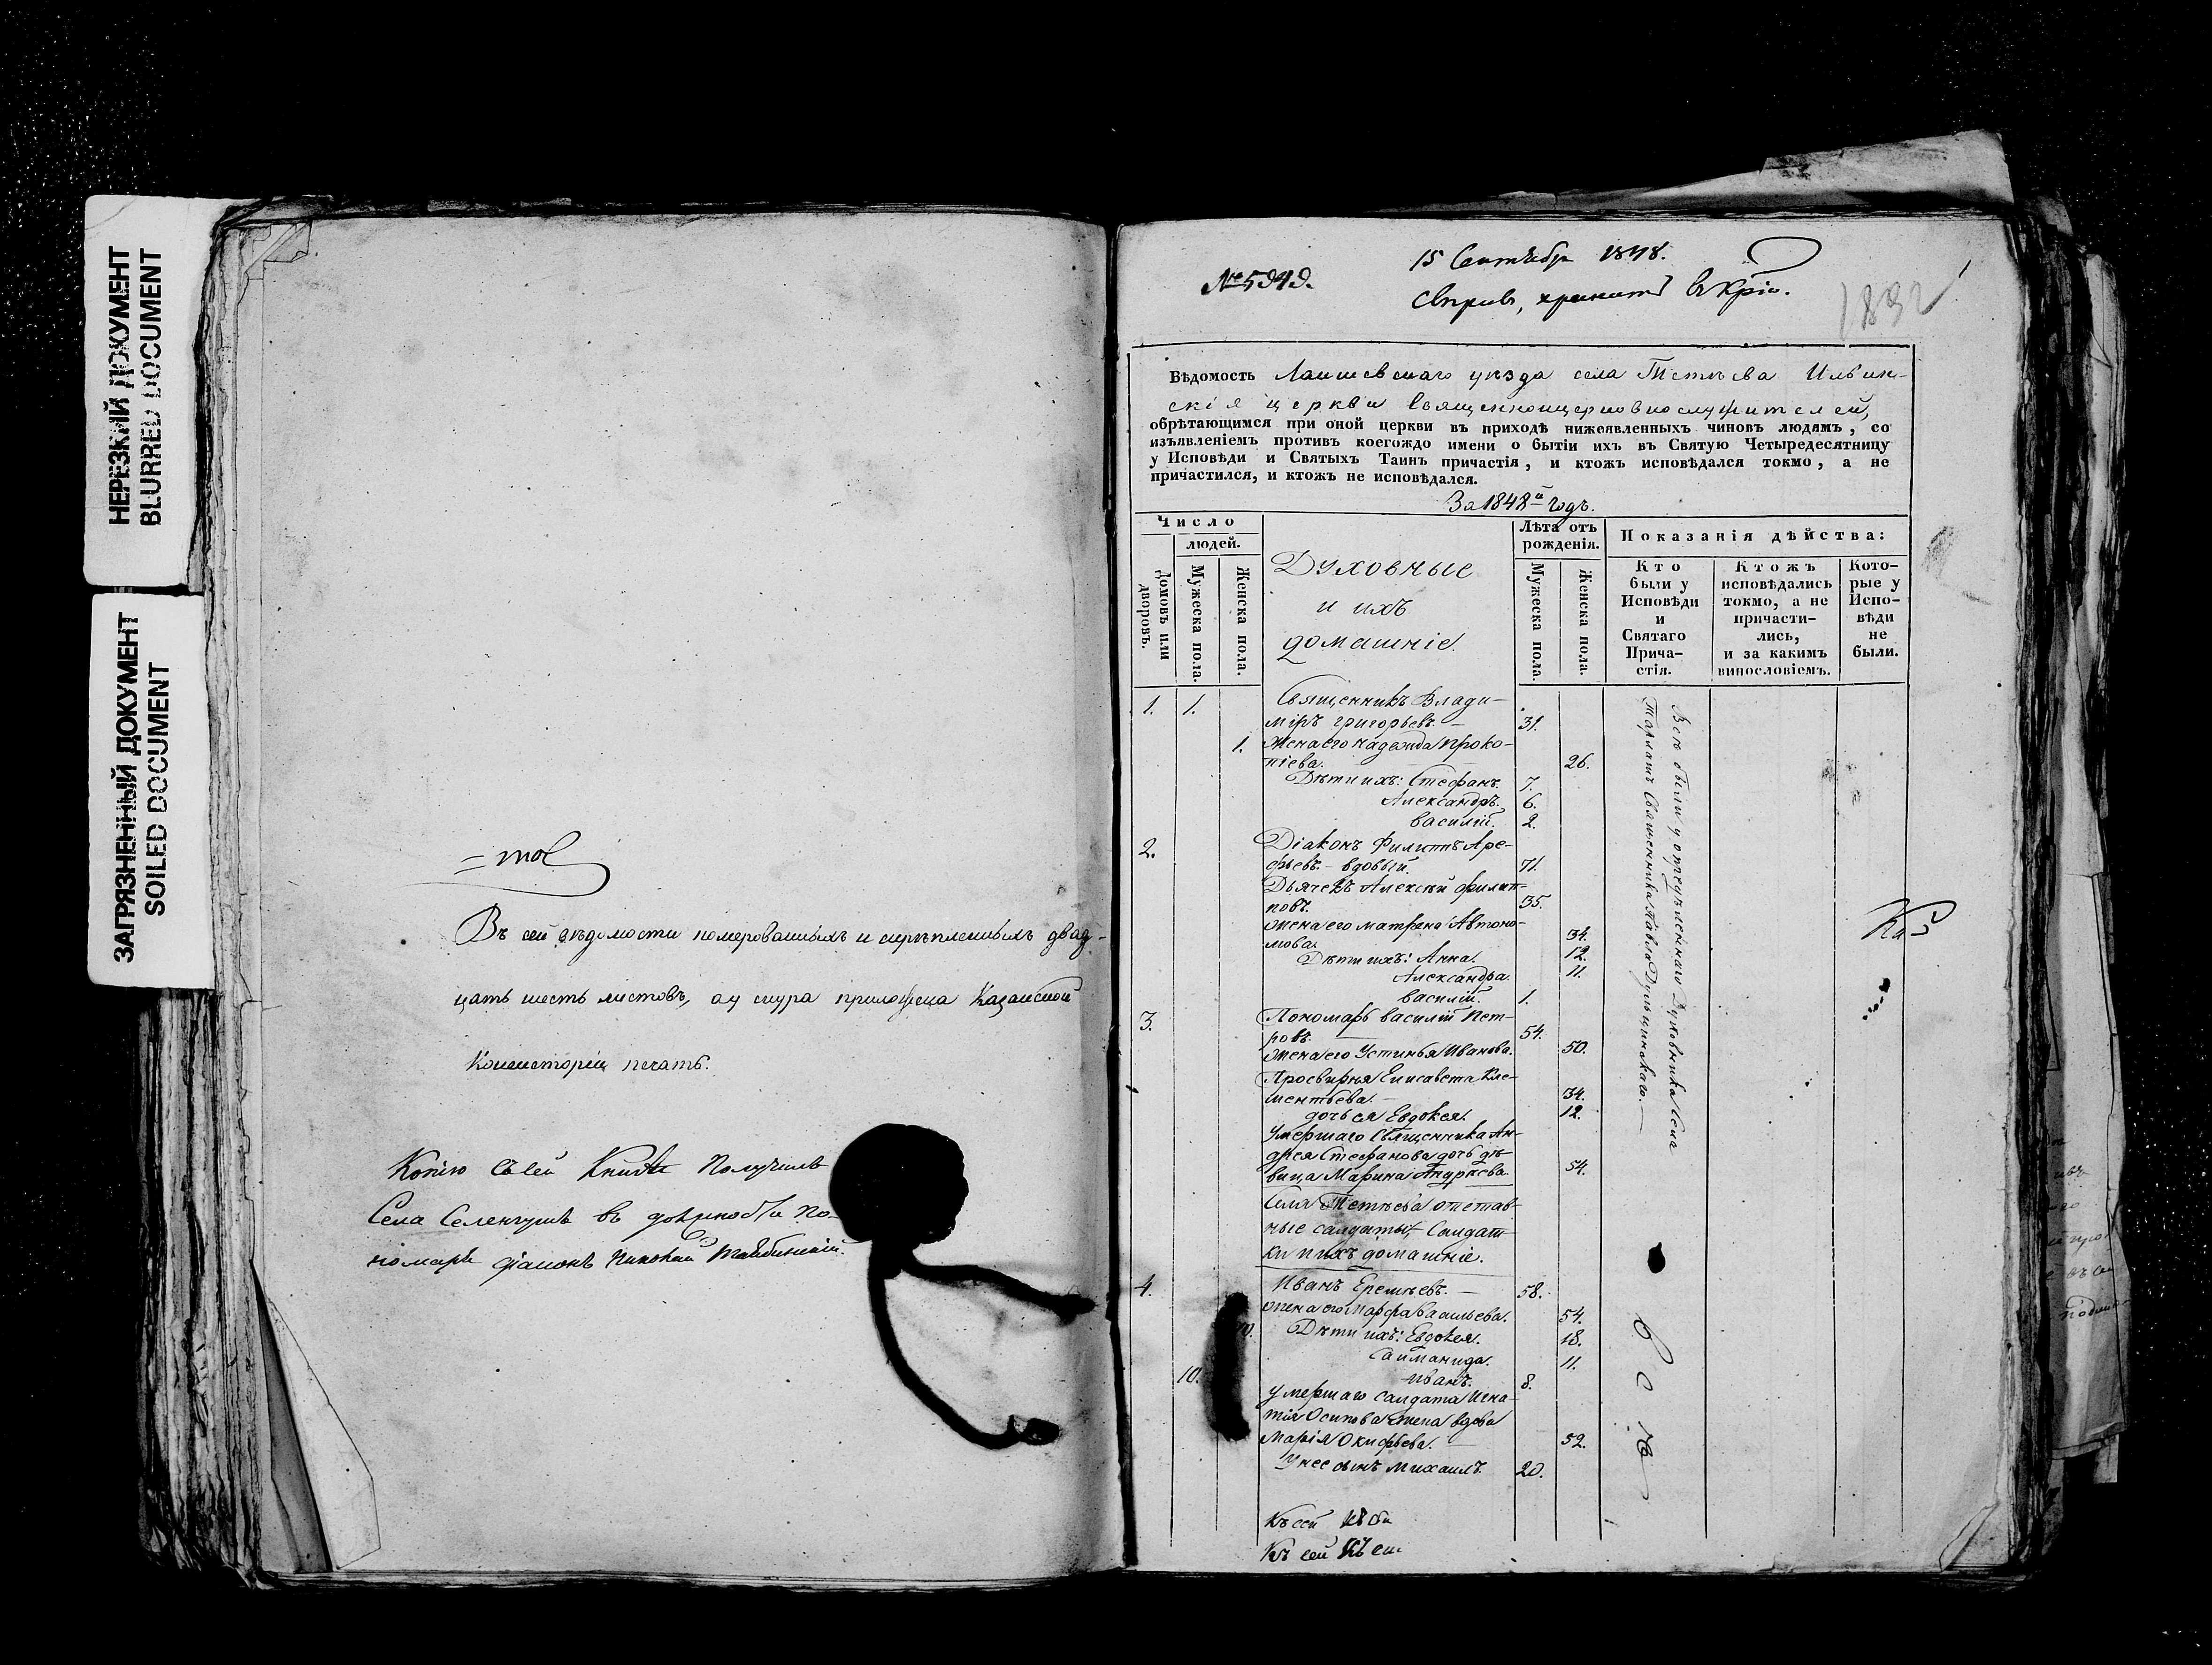 НЕРЕЗКИЙ ДОКУМЕНТ
BLURRED DOCUMENT
ЗАГРЯЗНЕННЫЙ ДОКУМЕНТ
SOILED DOCUMENT
Въ сей вѣдомости номерованныхъ и скрѣпленныхъ двад-
цать шесть листовъ, а у шнура приложена Казанской
Консисторіи печать.
Копію съ сей Книги Получилъ
Села Селенгуши въ должности По-
номаря
№ 5949.
15 Сентября 1848.
1892
Вѣдомость Лаишевскаго уѣзда села Тетѣева Ильин-
скія церкви Священноцерковнослужителей,
обрѣтающимся при оной церкви въ приходѣ нижеявленныхъ чиновъ людямъ, со
изъявленіемъ противъ коегождо имени о бытіи ихъ въ Святую Четыредесятницу
у Исповѣди и Святыхъ Таинъ причастія, и ктожъ исповѣдался токмо, а не
причастился, и ктожъ не исповѣдался.
За 1848й годъ.
Число
людей.
Домовъ или дворовъ.
Мужеска пола.
Женска пола.
Духовные
и ихъ
домашніе.
Лѣта отъ
рожденія.
Мужеска пола.
Женска пола.
Показанія дѣйства:
Кто
были у
Исповѣди
и
Святаго
Прича-
стія.
Ктожъ
исповѣдались
токмо, а не
причасти-
лись,
и за какимъ
винословіемъ.
Кото-
рые у
Испо-
вѣди
не
были.
1. 1. Священникъ Влади-
міръ Григорьевъ. — 31.
1. Жена его Надежда Проко-
піева. 26.
Дѣти ихъ: Стефанъ. 7.
Александръ. 6.
Василій. 2.
2. Діаконъ Филиппъ Аре-
фьевъ. – вдовый. 71.
Дьячекъ Алексѣй Филип-
повъ. 35.
Жена его Матрена Автоно-
мова. 34.
Дѣти ихъ: Анна. 12.
Александра. 11.
Василій. 1.
3. Пономарь Василій Пет-
ровъ. 54.
Жена его Устинья Иванова. 50.
Просвирня Елисавета Кле-
ментьева. — 34.
дочь ея Евдокея. 12.
Умершаго Священника Ан-
дрея Стефанова дочь дѣ-
вица Марина Андрѣева. 54.
Села Тетѣева отстав-
ные салдаты, Салдат-
ки и ихъ домашніе.
4. Иванъ Еремѣевъ. — 58.
Жена его Марфа Васильева. 54.
10. Дѣти ихъ: Евдокея. 18.
11.
10. Иванъ. 8.
Умершаго салдата Игна-
тія Осипова жена вдова
Марія Окифьева. — 52.
У нее сынъ Михаилъ. 20.
Всѣ были у опредѣленнаго Духовника Села
Священника Павла
Къ сей
Къ сей